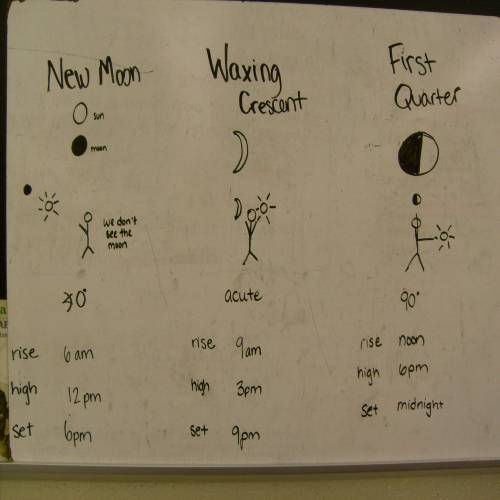 New Moon
sun
moon
we don't
see the
moon
∡0°
rise 6am
high 12pm
set 6pm
Waxing
Crescent
acute
rise 9am
high 3pm
set 9pm
First
Quarter
90°
rise noon
high 6pm
set midnight